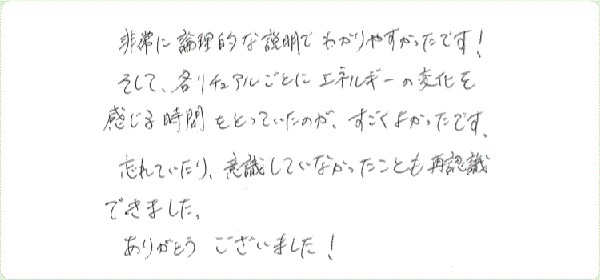 非常に論理的な説明でわかりやすかったです！
そして、各リチュアルごとにエネルギーの変化を
感じる時間をとっていたのが、すごくよかったです。
忘れていたり、意識していなかったことも再認識
できました。
ありがとうございました！